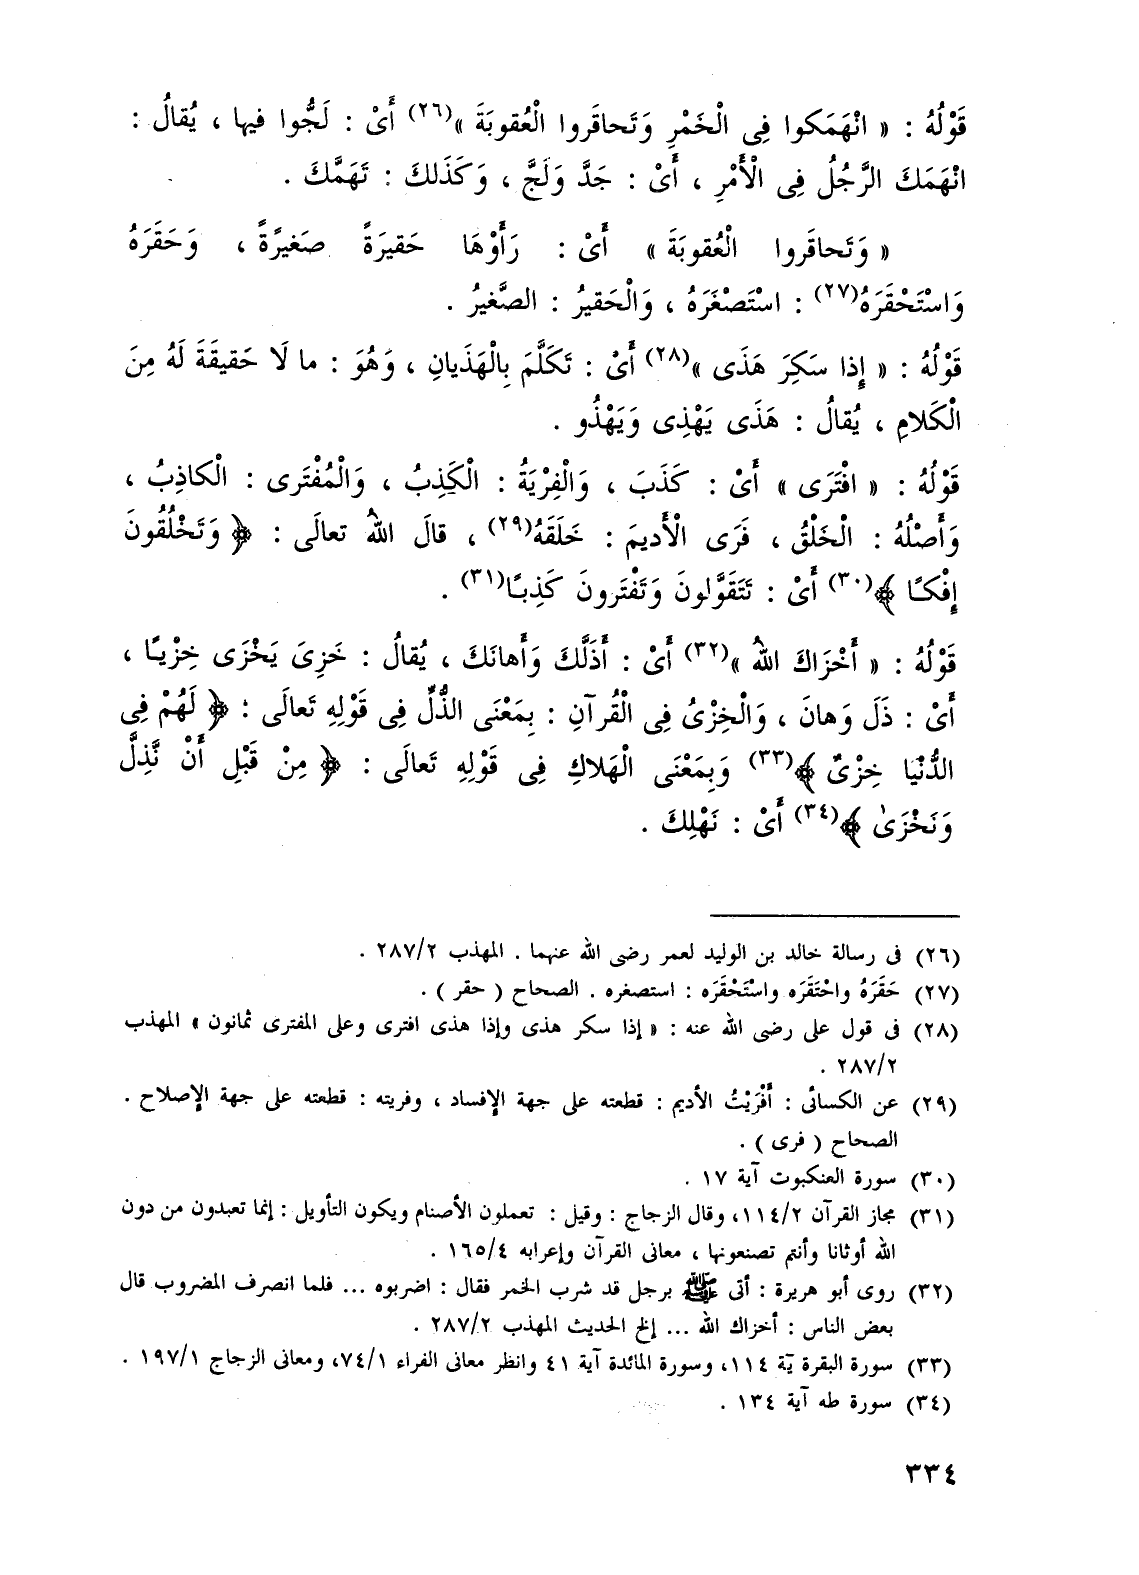 قَوْلُهُ : « انْهَمَكوا فِى الْخَمْرِ وَتَحاقَروا الْعُقوبَةَ »(٢٦) أَىْ : لَجُّوا فيها ، يُقالُ :
انْهَمَكَ الرَّجُلُ فِى الْأَمْرِ ، أَىْ : جَدَّ وَلَجَّ ، وَكَذَلكَ : تَهَمَّكَ .
« وَتَحاقَروا الْعُقوبَةَ » أَىْ : رَأَوْهَا حَقيرَةً صَغيرَةً ، وَحَقَرَهُ
وَاسْتَحْقَرَهُ(٢٧) : اسْتَصْغَرَهُ ، وَالْحَقيرُ : الصَّغيرُ .
قَوْلُهُ : « إِذا سَكِرَ هَذَى »(٢٨) أَىْ : تَكَلَّمَ بِالْهَذَيانِ ، وَهُوَ : ما لَا حَقيقَةَ لَهُ مِنَ
الْكَلامِ ، يُقالُ : هَذَى يَهْذِى وَيَهْذُو .
قَوْلُهُ : « افْتَرَى » أَىْ : كَذَبَ ، وَالْفِرْيَةُ : الْكَذِبُ ، وَالْمُفْتَرى : الْكاذِبُ ،
وَأَصْلُهُ : الْخَلْقُ ، فَرَى الْأَديمَ : خَلَقَهُ(٢٩) ، قالَ اللهُ تعالَى : ﴿ وَتَخْلُقُونَ
إِفْكًا ﴾(٣٠) أَىْ : تَتَقَوَّلونَ وَتَفْتَرونَ كَذِبًا(٣١) .
قَوْلُهُ : « أَخْزَاكَ اللهُ »(٣٢) أَىْ : أَذَلَّكَ وَأَهانَكَ ، يُقالُ : خَزِىَ يَخْزَى خِزْيًا ،
أَىْ : ذَلَ وَهانَ ، وَالْخِزْىُ فِى الْقُرآنِ : بِمَعْنَى الذُّلِّ فِى قَوْلِهِ تَعالَى : ﴿ لَهُمْ فِى
الدُّنْيَا خِزْىٌ ﴾(٣٣) وَبِمَعْنَى الْهَلاكِ فِى قَوْلِهِ تَعالَى : ﴿ مِنْ قَبْلِ أَنْ نَّذِلَّ
وَنَخْزَىٰ ﴾(٣٤) أَىْ : نَهْلِكَ .
(٢٦) فى رسالة خالد بن الوليد لعمر رضى الله عنهما . المهذب ٢٨٧/٢ .
(٢٧) حَقَرَهُ واحْتَقَرَه واسْتَحْقَرَه : استصغره . الصحاح ( حقر ) .
(٢٨) فى قول على رضى الله عنه : « إذا سكر هذى وإذا هذى افترى وعلى المفترى ثمانون » المهذب
٢٨٧/٢ .
(٢٩) عن الكسائى : أَفْرَيْتُ الأديم : قطعته على جهة الإفساد ، وفريته : قطعته على جهة الإصلاح .
الصحاح ( فرى ) .
(٣٠) سورة العنكبوت آية ١٧ .
(٣١) مجاز القرآن ١١٤/٢، وقال الزجاج : وقيل : تعملون الأصنام ويكون التأويل : إنما تعبدون من دون
الله أوثانا وأنتم تصنعونها ، معانى القرآن وإعرابه ١٦٥/٤ .
(٣٢) روى أبو هريرة : أتى ﷺ برجل قد شرب الخمر فقال : اضربوه ... فلما انصرف المضروب قال
بعض الناس : أخزاك الله ... إلخ الحديث المهذب ٢٨٧/٢ .
(٣٣) سورة البقرة يّة ١١٤، وسورة المائدة آية ٤١ وانظر معانى الفراء ٧٤/١، ومعانى الزجاج ١٩٧/١ .
(٣٤) سورة طه آية ١٣٤ .
٣٣٤